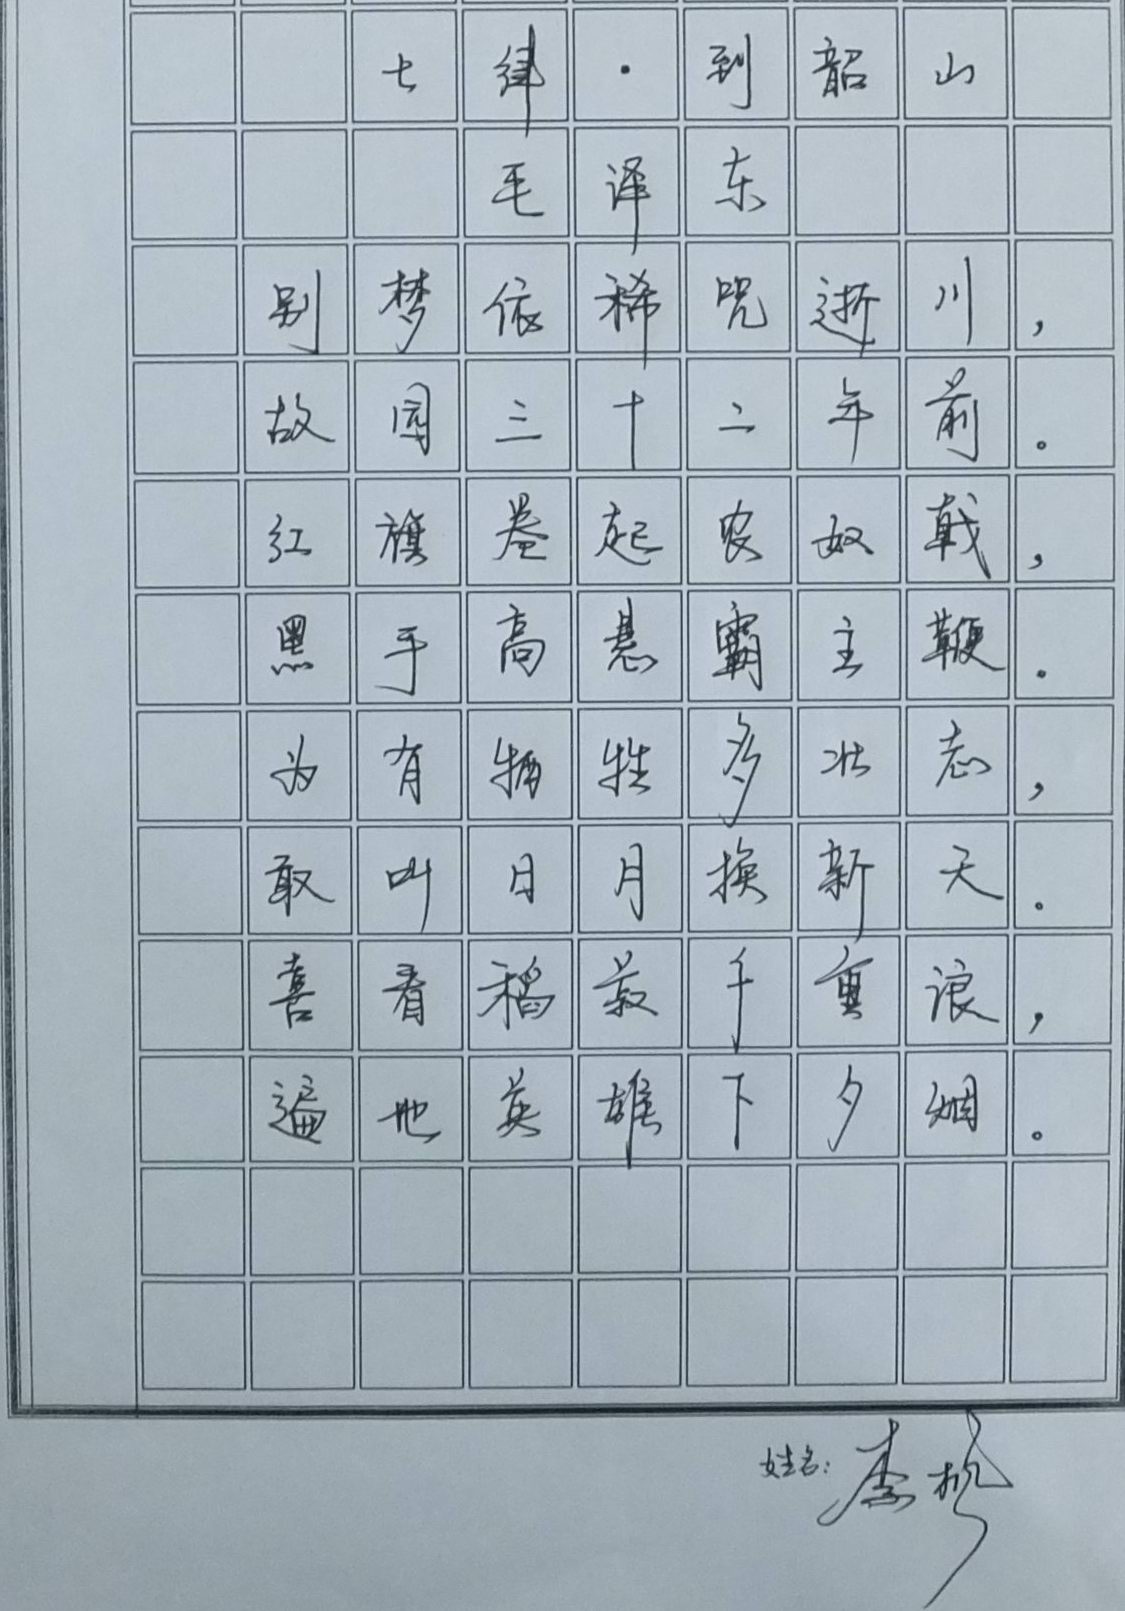 七律·到韶山
毛泽东
别梦依稀咒逝川，
故园三十二年前。
红旗卷起农奴戟，
黑手高悬霸主鞭。
为有牺牲多壮志，
敢叫日月换新天。
喜看稻菽千重浪，
遍地英雄下夕烟。
姓名：李